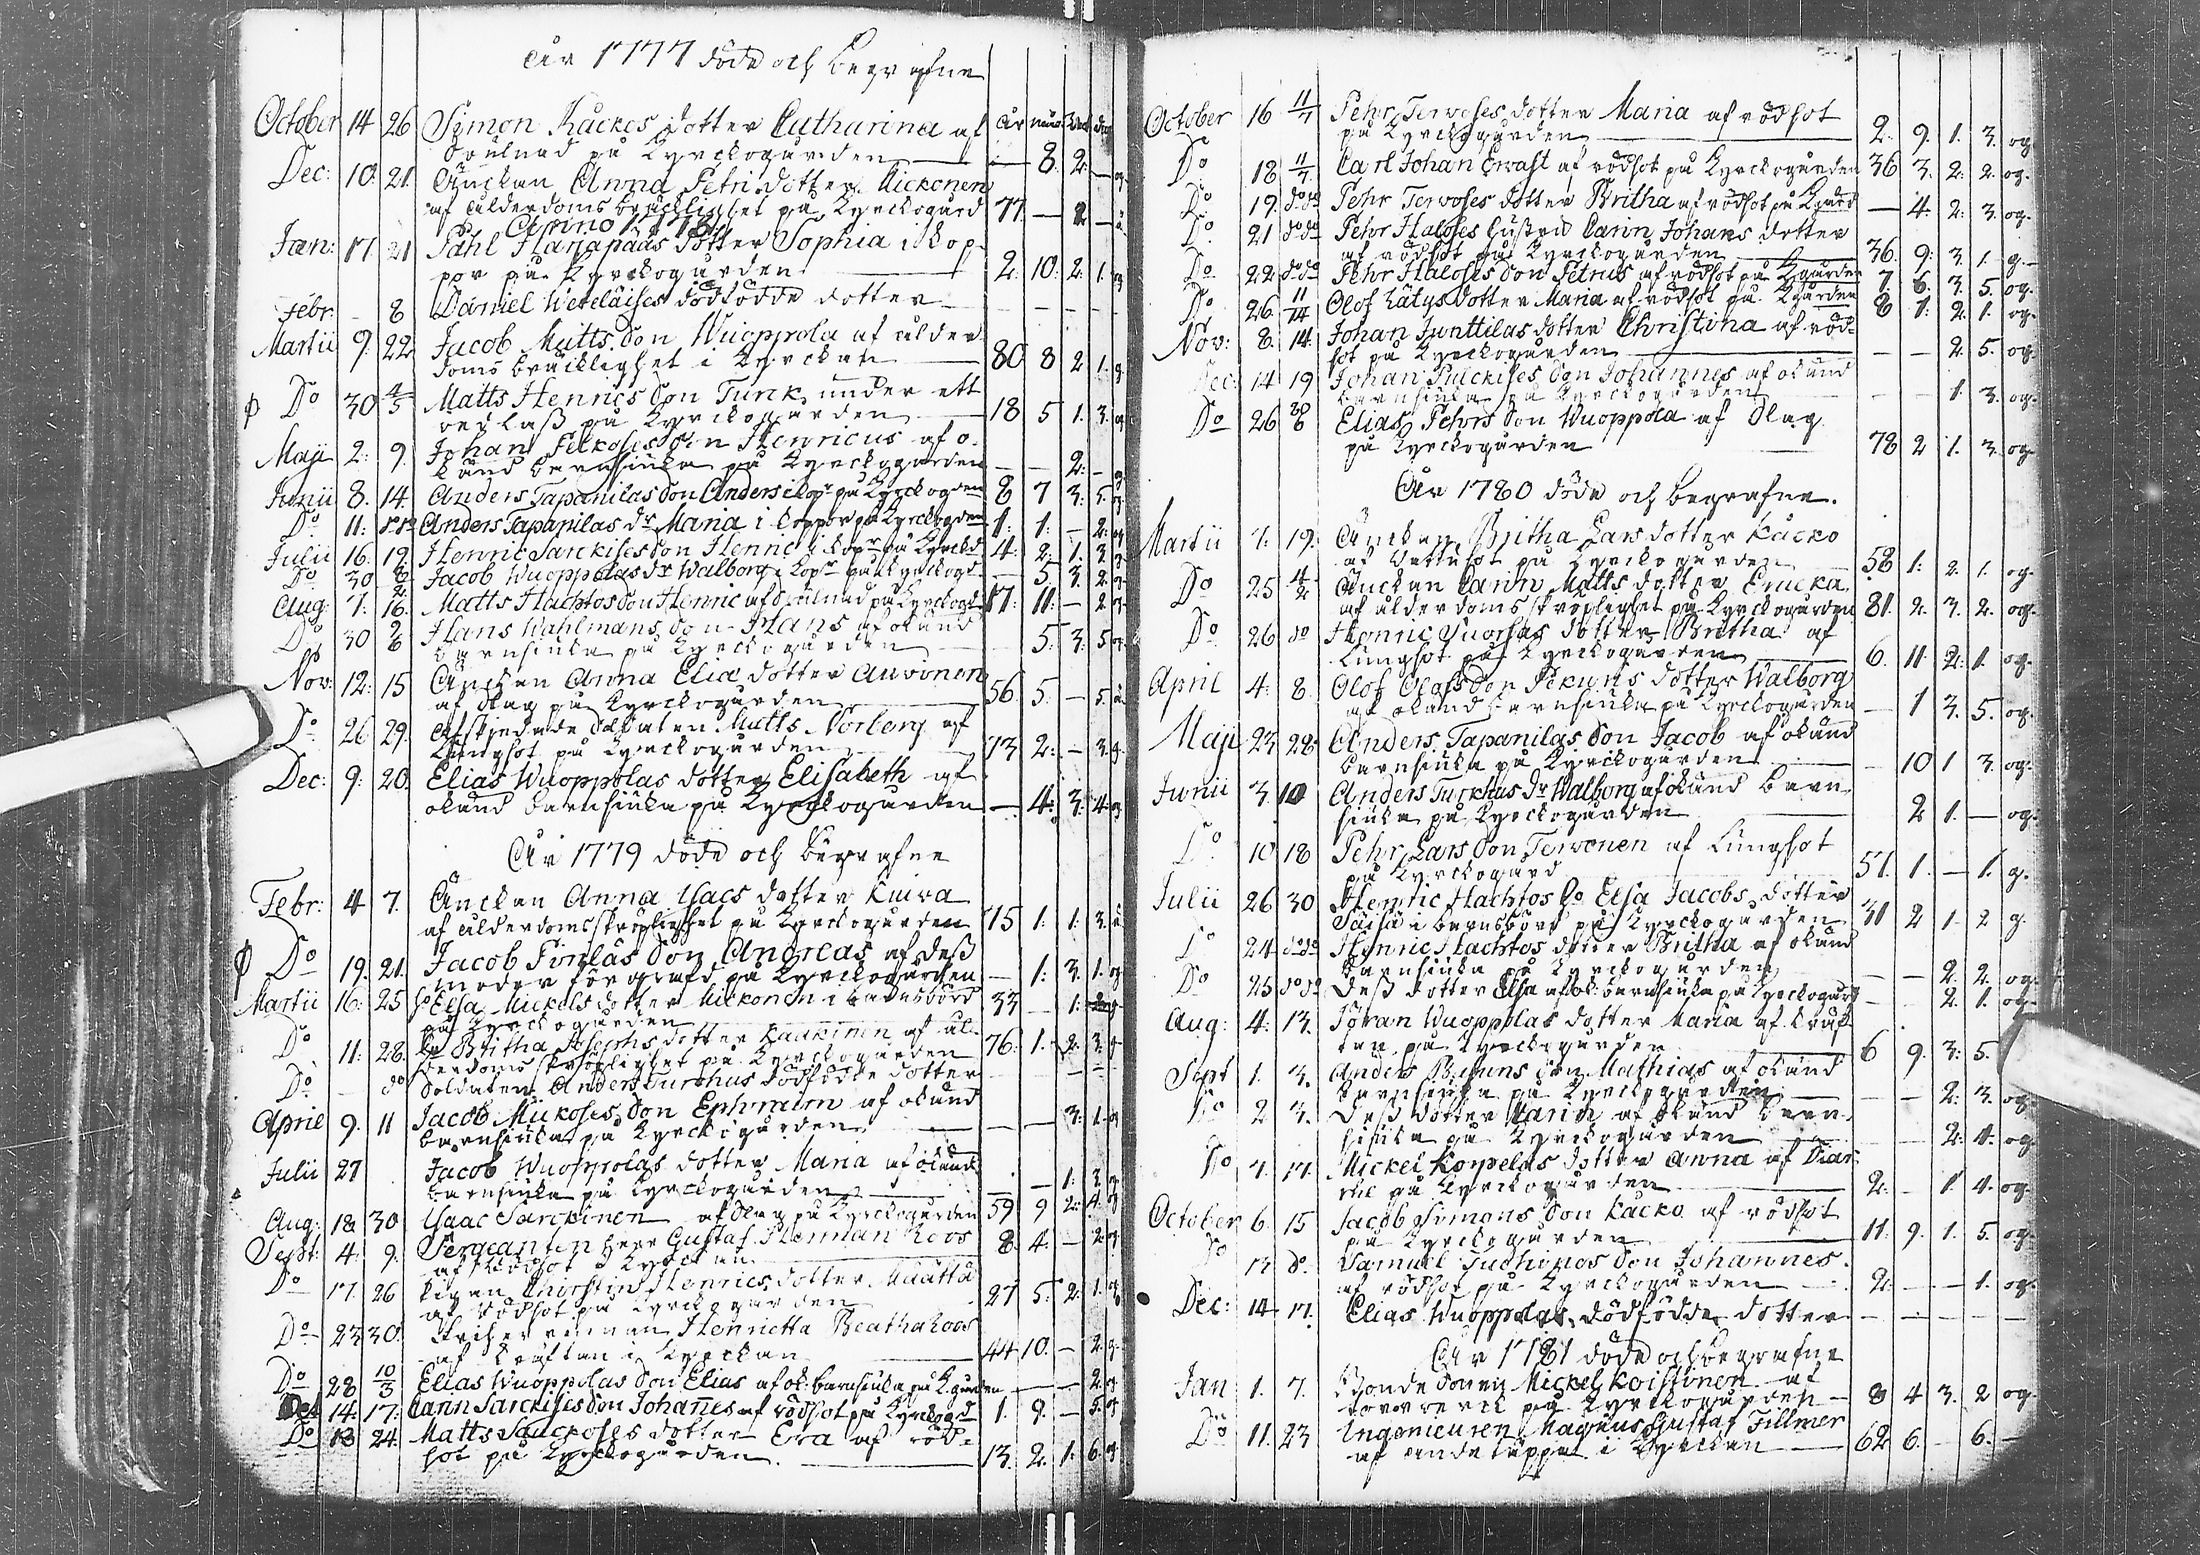 År 1777 döde och begrafne
October 14 26 Symon Kåckos dotter Catharina af år mån wek dag
på Kyrckogården — 8. 2. — og
Dec: 10. 21. Änckan Anna Petri dotter Mickonen
af ålderdoms bräcklighet på Kyrckogård 77. — 2 —
Anno 1778
Jan: 17 21 Påhl Hanapääs dotter Sophia i kop-
por på Kyrckogården 2. 10. 2. 1. og
Febr. — 8 Daniel Weteläises dödfödde dotter — — — —
Martii 9. 22. Jacob Matts Son Wuoppola af ålder-
doms bräcklighet i Kyrckan 80 8 2 1. g
φ Do 30 4/5 Matts Henrics Son Turck under ett
på Kyrckogården 18 5 1. 3. og
Maji 2. 9. Johan Pelkoses Son Henricus af o-
känd barnsiuka på Kyrckogården — — 2. —
Junii 8. 14. Anders Tapanilas Son Anders i kopr på Kyrckogden 8 7 3. 5. og
Do 11. do do Anders Tapanilas dr Maria i koppor på Kyrckogden 1. 1. — 2. og
Julii 16. 19. Henric Sarckises Son Henric i kopr på Kyrckd 4. 2. 1. 3 g
Do 30 2/8 Jacob Wuoppolas dr Walborg i kopr på Kyrckogd — 5. 3. 2. g
Aug: 7. 16. Matts Hachtos Son Henric af på Kyrckogd 17. 11. — 2 og
Do 30 6/9 Hans Wahlmans Son Hans af okänd
barnsiuka på Kyrckogården — 5. 3. 5 og
Nov: 12. 15 Änckan Anna Eliæ dotter Auvonen
af slag på Kyrckogården 56 5. — 5.
Do 26 29. Afskjedade Soldaten Matts Norberg af
Lungsot på Kyrckogården 73 2. — 3. g.
Dec: 9. 20. Elias Wuoppolas dotter Elisabeth af
okänd barnsiuka på Kyrckogården — 4. 3. 4. og
År 1779 döde och begrafne
Febr: 4 7. Änckan Anna Isacs dotter Kuiva
af ålderdomsskröplighet på Kyrckogården 75 1. 1. 3.
φ Do 19. 21. Jacob Pirilas Son Andreas af dess
moder förqväfd på Kyrckogården — 1. 3. 1. og
Martii 16. 25 Ho Elsa Mickels dotter Mickonen i barnsbörd
på Kyrckogården 33 — 1.
Do 11. 28. Britha Josephs dotter Kaakinen af ål-
derdomsskröplighet på Kyrckogården 76. 1. 2. 3. g
Do — do Soldaten Anders Turchus dödfödde dotter — — — —
April 9. 11 Jacob Mickoses Son Ephraim af okänd
barnsiuka på Kyrckogården — — 3. 1. og
Julii 27 Jacob Wuoppolas dotter Maria af okänd
barnsiuka på Kyrckogården — — 1. 3. og
Aug: 18 30 Isaac Sarckinen af slag på Kyrckogården 59 9 2. 4. og
Sept. 4. 9. Sergeanten Herr Gustaf Herman Roos
af Rödsot i Kyrckan 8. 4. — 2 og
Do 17. 26 Pigan Christin Henrics dotter Määttä
af Rödsot på Kyrckogården 27 5. 2. 1. og
Do 23 30. Henrietta Beatha Roos
af kräftan i Kyrckan 44 10. — 2. g.
Do 28 10/3 Elias Wuoppolas Son Elias af ok: barnsiuka på K.gården — — — 2. og
Oct 14. 17. Carin Sarckises Son Johanes af rödsot på Kyrckogd 1. 9. — 5. og
Do 13 24. Matts Sauckoses dotter Eva af röd-
sot på Kyrckogården 13. 2. 1. 6. og
October 16 11/7 Pehr Tervoses dotter Maria af rödsot
på Kyrckogården 2. 9. 1. 3. og
Do 18 11/7 Carl Johan Ervast af rödsot på Kyrckogården 36 3. 2. 2. og.
Do 19. do do Pehr Tervoses dotter Britha af rödsot på Kgård — 4. 2. 3. og.
Do 21 do do Pehr Haloses hustru Carin Johans dotter
af rödsot på Kyrckogården 36. 9. 3. 1. g.
Do 22 do do Pehr Haloses Son Petrus af rödsot på Kgården 7. 6. 3. 5. og.
Do 26 11/14 Olof Lätys dotter Maria af rödsot på Kgården 8 1. 2. 1. og.
Nov: 8. 14. Johan Junttilas dotter Christina af röd-
sot på Kyrckogården — — 2. 5. og.
Dec: 14 19 Johan Pulckises Son Johannes af okänd
barnsiuka på Kyrckogården — — 1. 3. og.
Do 26 Elias Pehrs Son Wuoppola af slag
på Kyrckogården 78 2 1. 3. og.
År 1780 döde och begrafne.
Martii 7. 19. Änckan Britha Lars dotter Kåcko
af Wattusot på Kyrckogården 58 1. 2. 1. og.
Do 25 4/2 Änckan Carin Matts dotter
af ålderdomsskröplighet på Kyrckogården 81. 2. 3. 2. og.
Do 26 do Henric Suorsas dotter Britha af
Lungsot på Kyrckogården 6. 11. 2. 1. og.
April 4. 8. Olof Olofs Son Pekuns dotter Walborg
af okänd barnsiuka på Kyrckogården — 1 3. 5. og.
Maji 23 28. Anders Tapanilas Son Jacob af okänd
barnsiuka på Kyrckogården — 10 1 3. og.
Junii 3. 10 Anders Turkhus dr Walborg af okänd barn-
siuka på Kyrckogården 2 1. — og.
Do 10 18 Pehr Lars Son Tervonen af Lungsot
på Kyrckogård 57. 1. — 1. g.
Julii 26 30 Henric Hachtos Ho Elsa Jacobs dotter
i barnsbörd på Kyrckogården 31 2 1. 2 g.
Do 24 do do Henric Hachtos dotter Britha af okänd
barnsiuka på Kyrckogården — — 2. 2. og.
Do 25 do do Dess dotter Elsa af ok: barnsiuka på Kyrckogård — — 2. 1. og.
Aug: 4. 13. Göran Wuoppolas dotter Maria af kräf-
tan på Kyrckogården 6 9. 3. 5.
Sept 1. 3. Anders Son Mathias af okänd
barnsiuka på Kyrckogården — — 2. 3. og
Do 2 3. Dess dotter Carin af okänd barn-
siuka på Kyrckogården — — 2. 4. og.
Do 7. 17. Mickel Korpelas dotter Anna af Diar-
rhé på Kyrckogården 2. — 1 4. og.
October 6. 15 Jacob Symons Son Kåcko af rödsot
på Kyrckogården 11. 9. 1. 5. og.
Do 13 do. Samuel Son Johannes
af rödsot på Kyrckogården 2. — — 1. og.
Dec: 14 17. Elias Wuoppolas dödfödde dotter — — — —
År 1781 döde och begrafne
Jan 1. 7. Bonde Sonen Mickel Koistinen af
på Kyrckogården 8 4 3. 2 og.
Do 11. 23 Ingenieuren Magnus Gustaf Tillmer
af andtäppa i Kyrckan 62 6. — 6. —